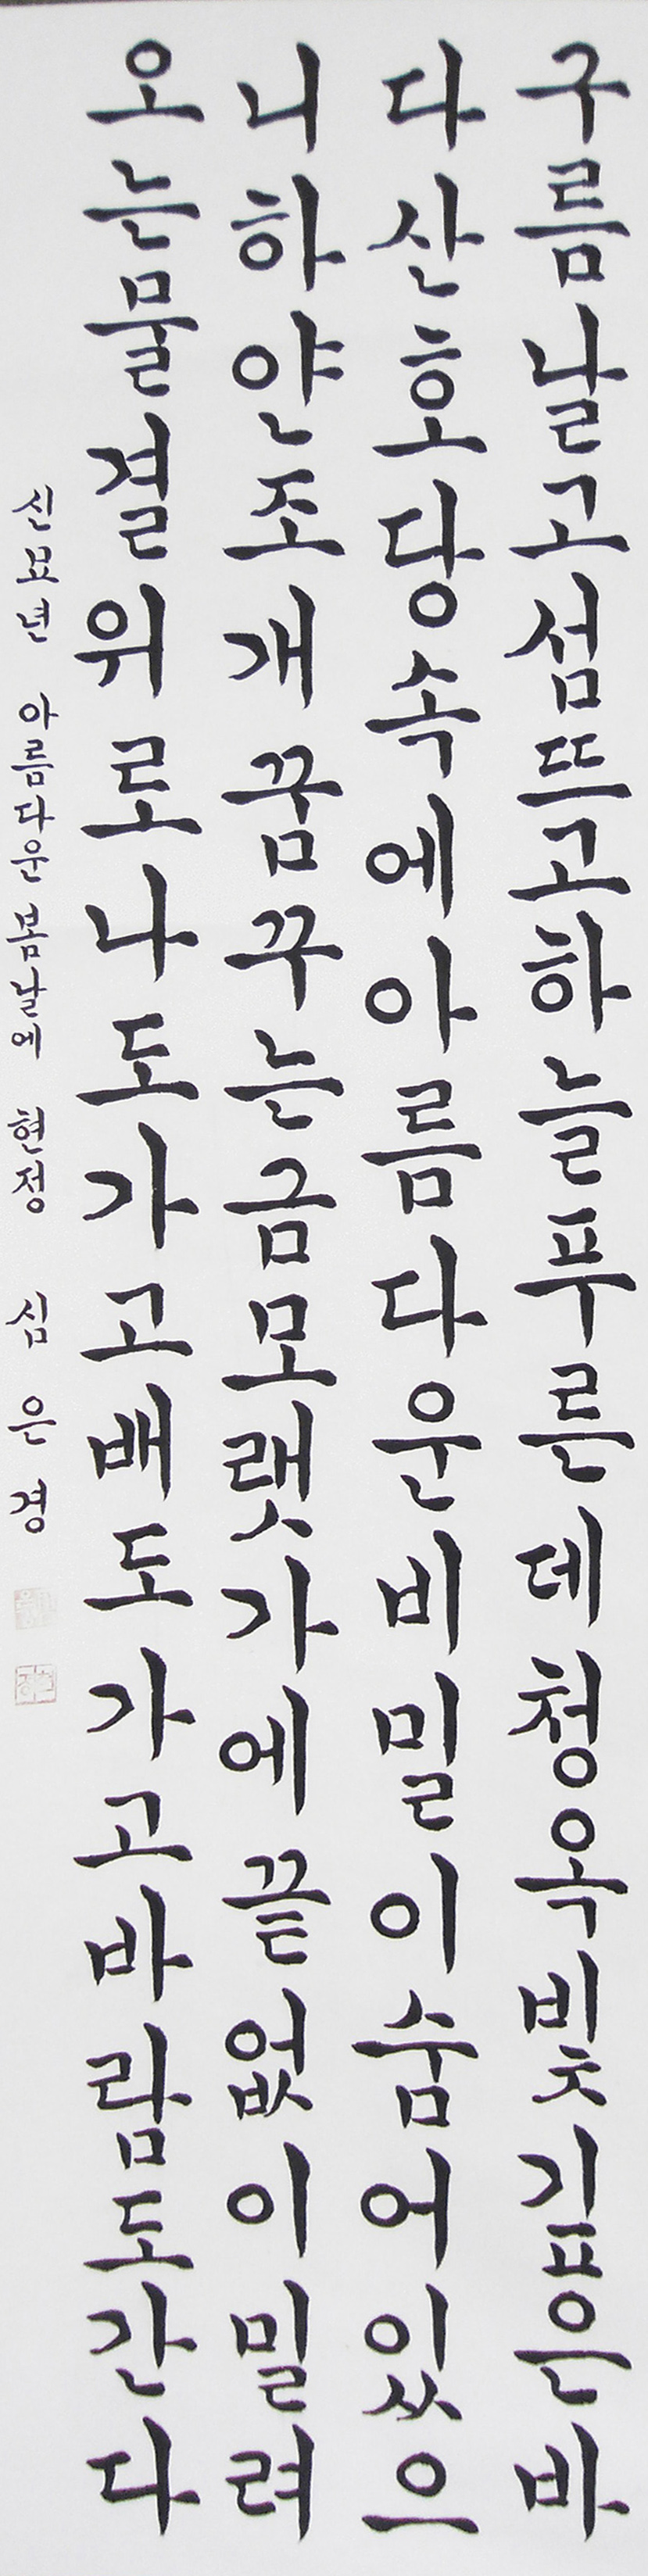 구름날고섬뜨고하늘푸른데청옥빛깊은바
다산호당속에아름다운비밀이숨어있으
니하얀조개꿈꾸는금모랫가에끝없이밀려
오는물결위로나도가고배도가고바람도간다
신묘년 아름다운 봄날에 현정 심은경